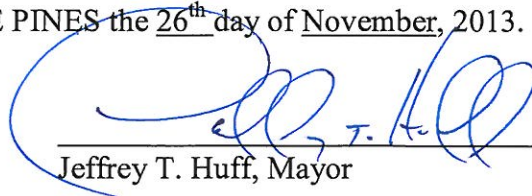 E PINES the 26th day of November, 2013.
Jeffrey T. Huff, Mayor